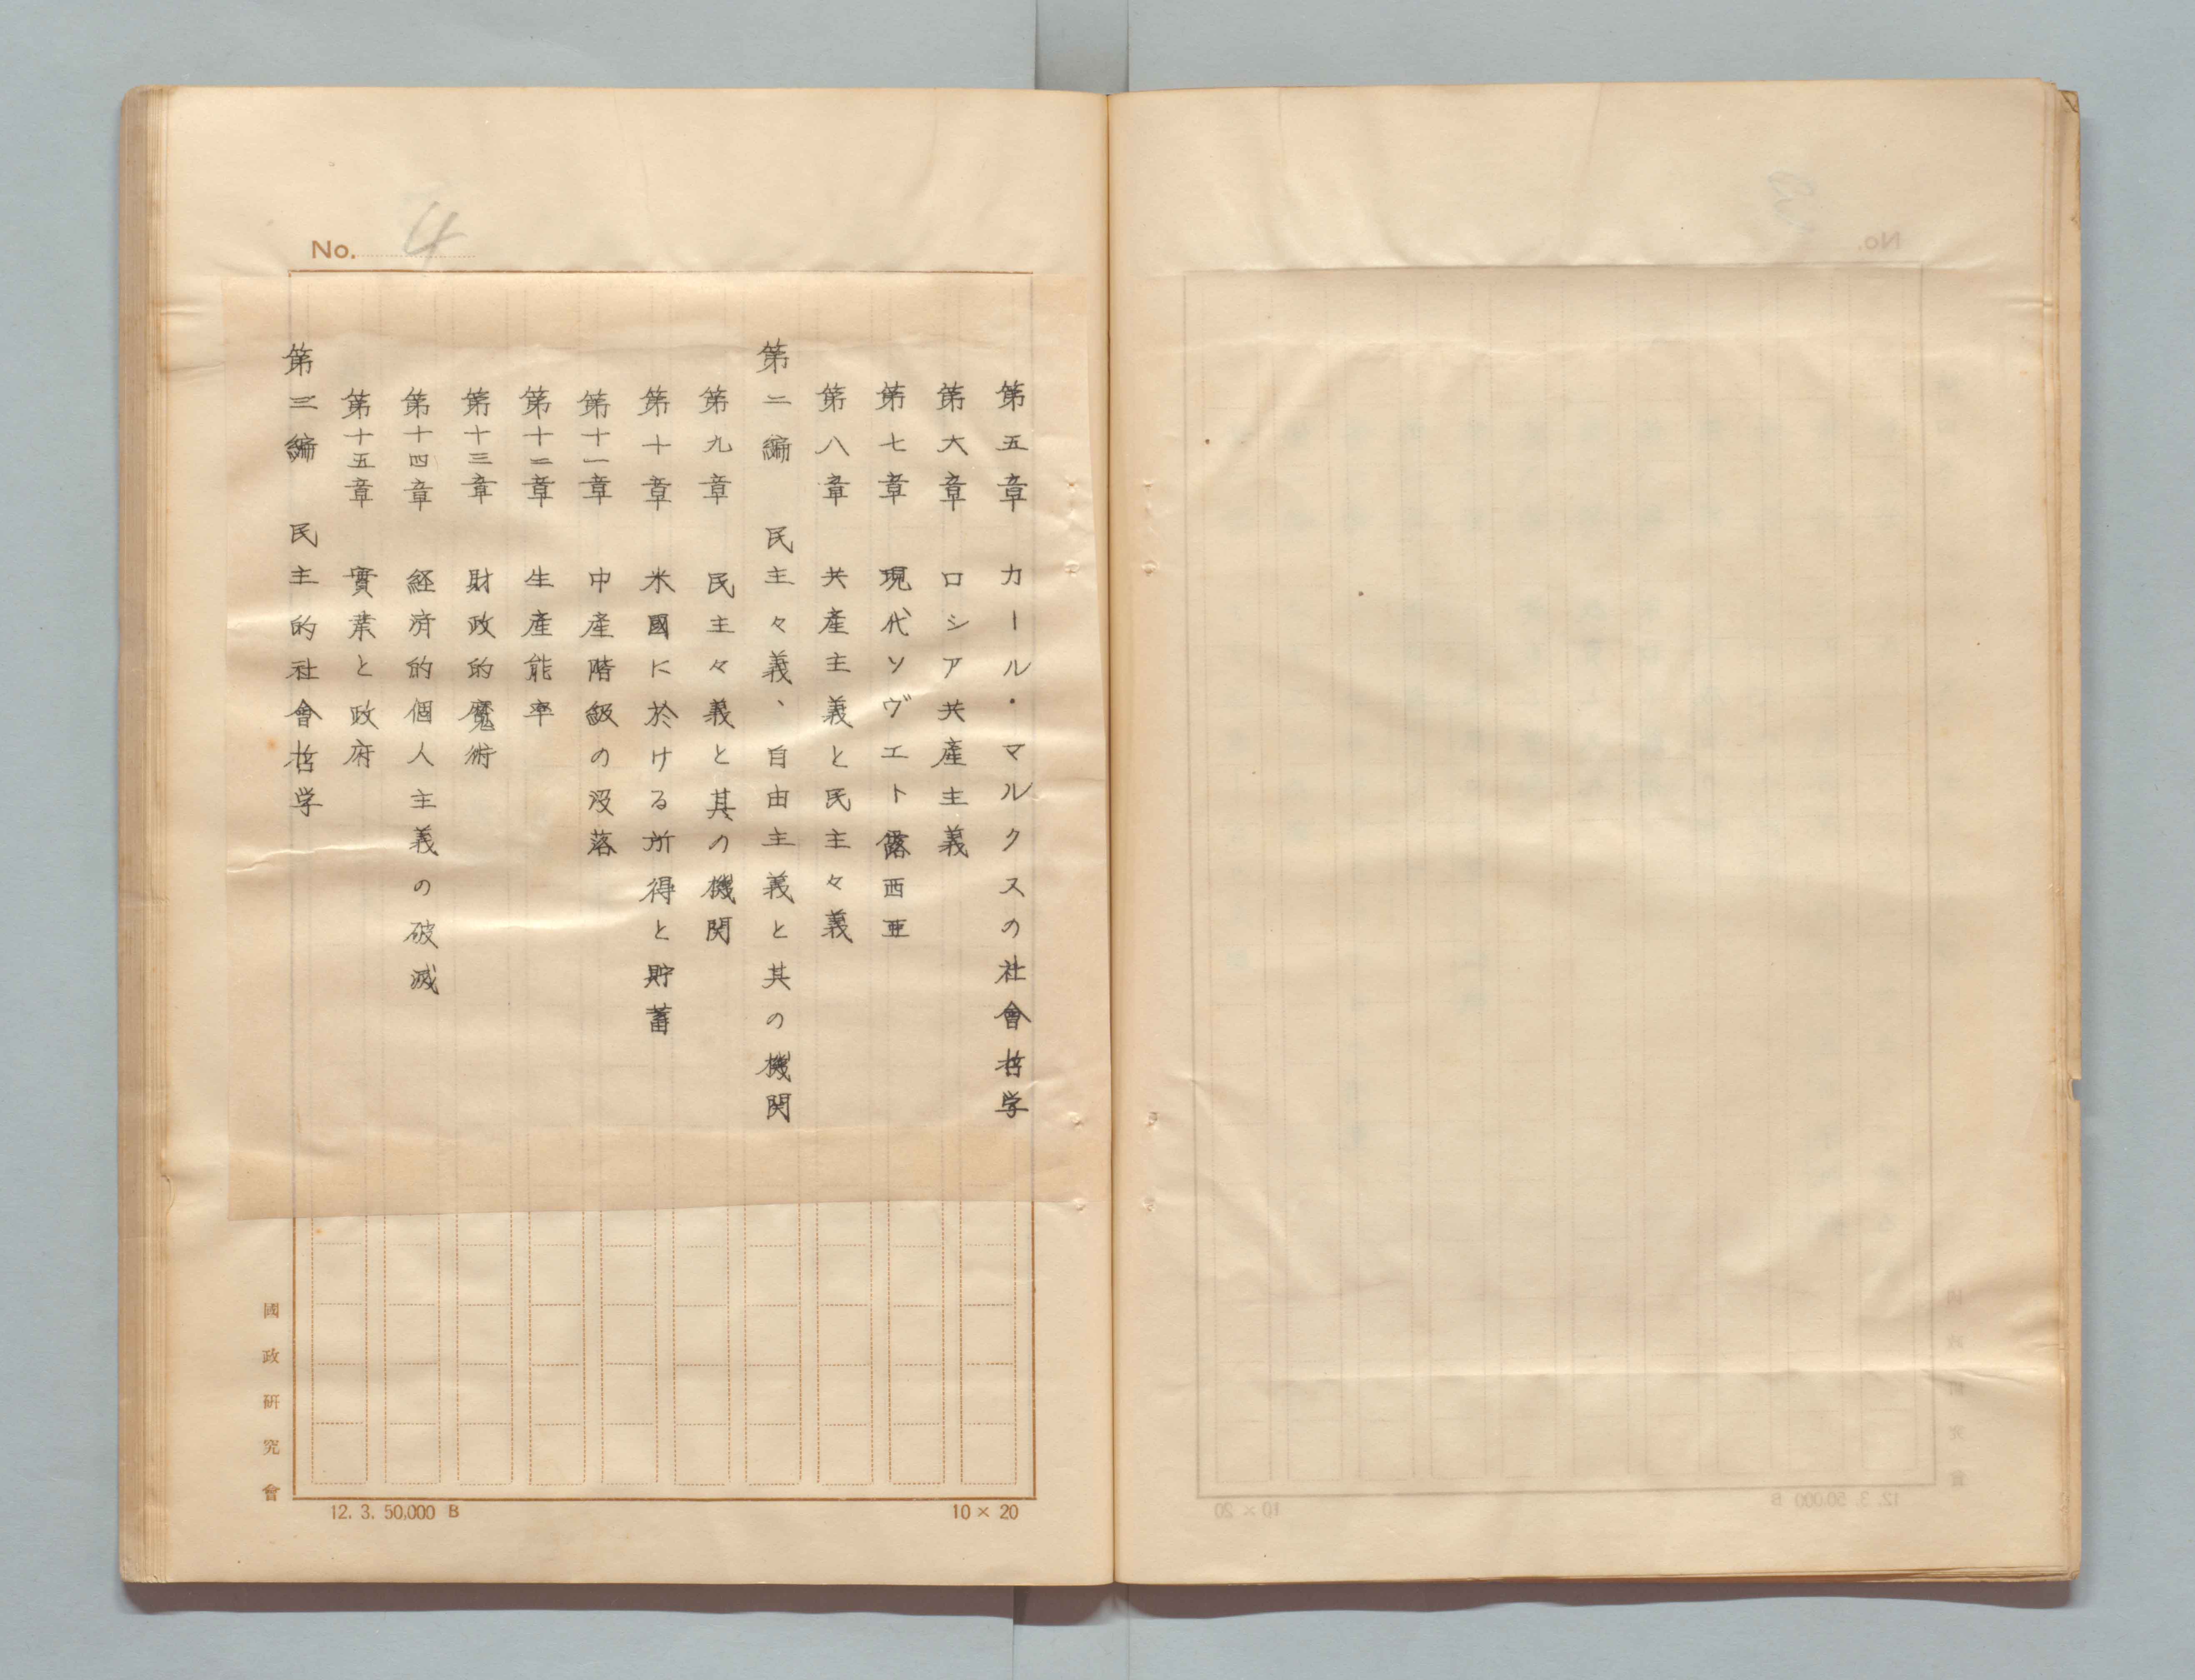 No. 4
第五章 カール・マルクスの社會哲学
第六章 ロシア共産主義
第七章 現代ソヴエト露西亜
第八章 共産主義と民主々義
第二編 民主々義、自由主義と其の機関
第九章 民主々義と其の機関
第十章 米國に於ける所得と貯蓄
第十一章 中産階級の没落
第十二章 生産能率
第十三章 財政的魔術
第十四章 経済的個人主義の破滅
第十五章 實業と政府
第三編 民主的社會哲学
國政研究會
12. 3. 50,000 B
10×20